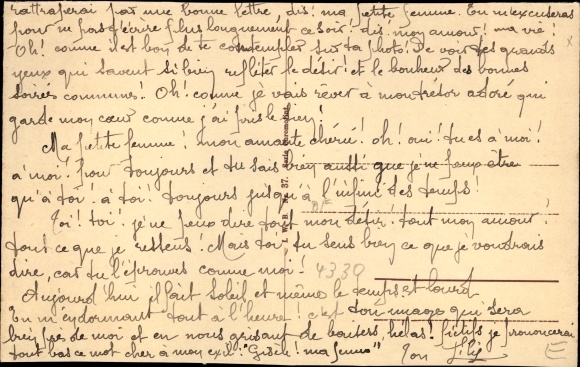 rattraperai par une bonne lettre, dis! ma petite femme. Tu m'excuseras
pour ne pas t'écrire plus longuement ce soir! dis! mon amour! ma vie!
Oh! comme il est bon de te contempler sur ta photo! De voir tes grands
yeux qui savent si bien refléter le désir! et le bonheur des bonnes
soirées communes! Oh! comme je vais rêver à mon trésor adoré qui
garde mon cœur comme j'ai pris le sien!
Ma petite femme! mon amante chérie! oh! oui! tu es à moi!
à moi! Pour toujours et tu sais bien aussi que je ne peux être
qu'à toi! à toi! toujours jusqu'à l'infini des temps!
Toi! toi! je ne peux dire tout mon désir! tout mon amour,
tout ce que je ressens! Mais toi, tu sens bien ce que je voudrais
dire, car tu l'éprouves comme moi!
4330
Aujourd'hui il fait soleil et même le temps est lourd
En m'endormant tout à l'heure! c'est ton image qui sera
bien près de moi et en nous grisant de baisers, hélas! fictifs je prononcerai
tout bas ce mot cher à mon "Gisèle! ma femme"
Ton
37.
E